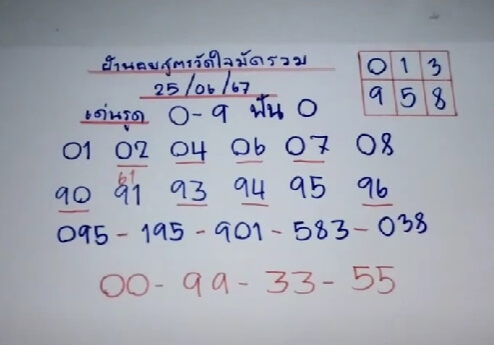 ผ่านคนสูตรวัดใจมัดรวม
25/06/67
เด่นรูด 0-9 ฟัน 0
0 1 3
9 5 8
01 02 04 06 07 08
61
90 91 93 94 95 96
095 - 195 - 901 - 583 - 038
00 - 99 - 33 - 55